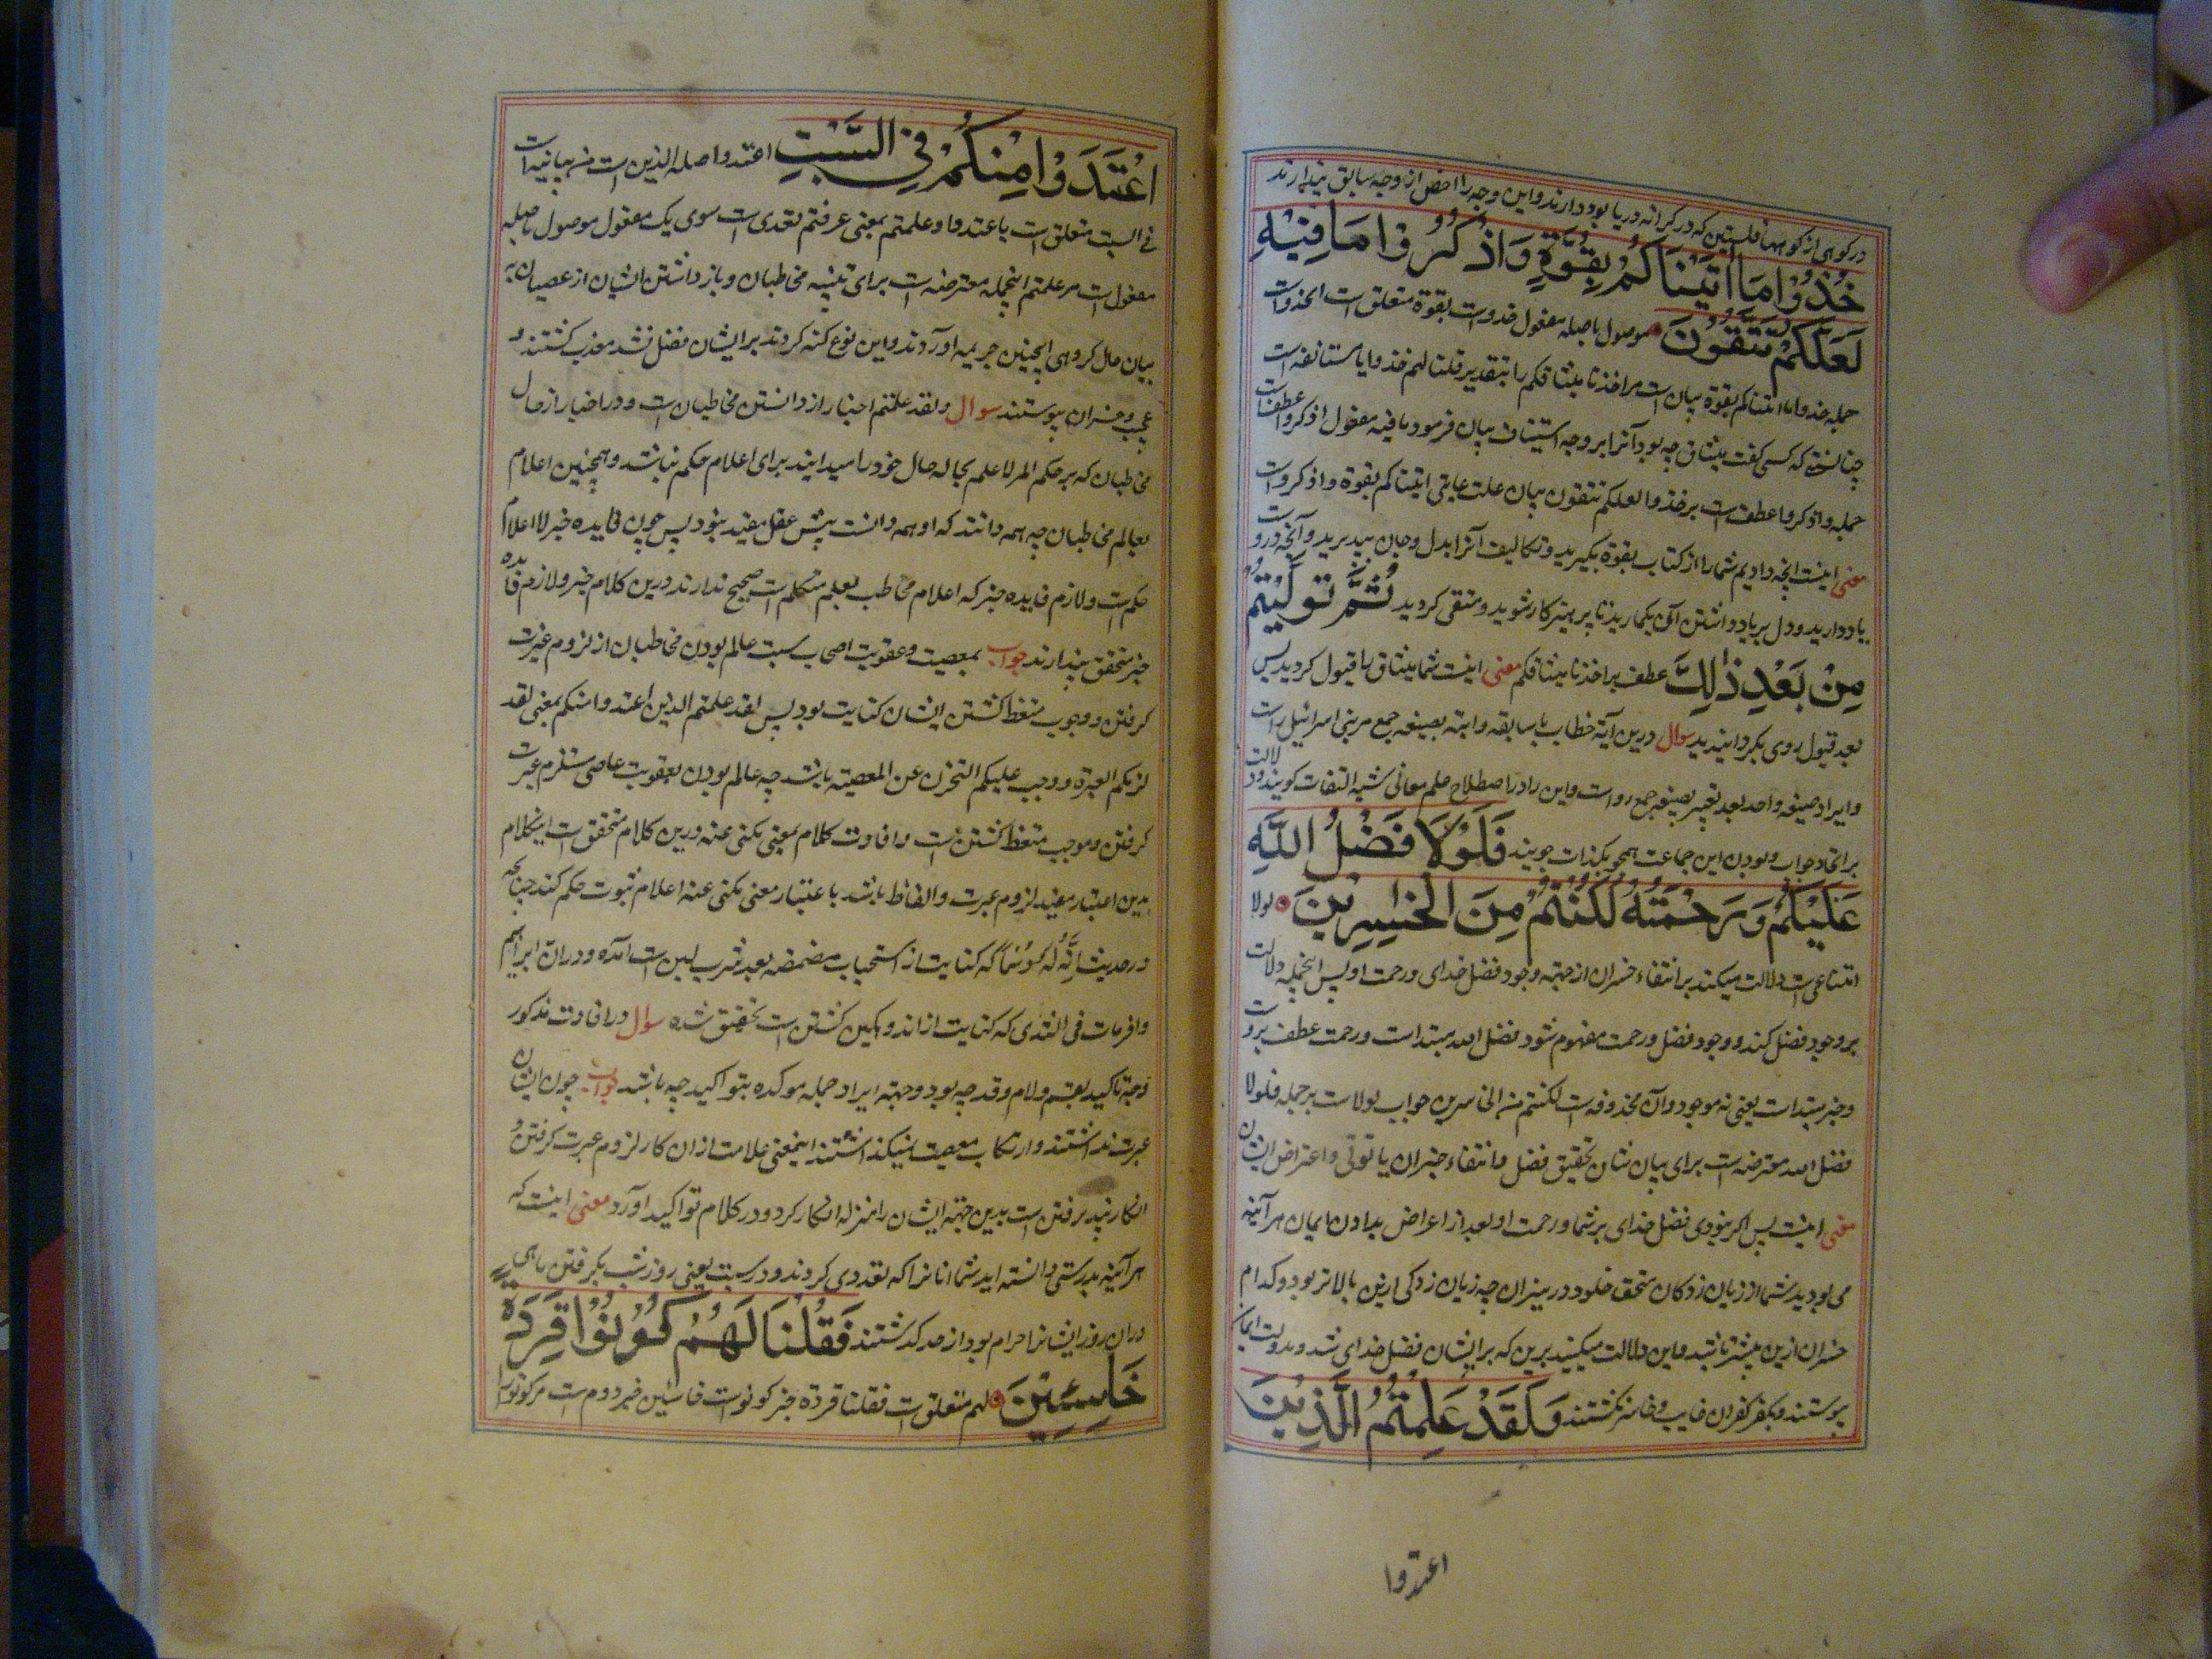 در کوهی از کوههاء فلسطین که در کرانه دریا بود دارند و این وجه را اخص از وجه سابق پندارند
خُذُوْا مَا اٰتَيْنَاكُمْ بِقُوَّةٍ وَاذْكُرُوْا مَا فِيْهِ
لَعَلَّكُمْ تَتَّقُوْنَ موصول با صله مفعول خذواست بقوة متعلق است بخذواست
جمله خذوا ما اتیناکم بقوة بیان است مر اخذنا میثاقکم را بتقدیر قلنا لهم خذوا یا مستانفه است
چنانستی که کسی گفت میثاق چه بود آنرا بر وجه استیناف بیان فرمود ما فیه مفعول اذکروا
جمله و اذکروا عطف است بر خذوا لعلکم تتقون بیان علت غایی اتیناکم بقوة و اذکرواست
معنی اینست انچه دادیم شما را از کتاب بقوة بگیرید و تکالیف آنرا بدل و جان بپذیرید و آنچه دروست
یاد دارید و دل بر یاد داشتن آن بگمارید تا پرهیزکار شوید و متقی گردید ثُمَّ تَوَلَّيْتُمْ
مِنْ بَعْدِ ذٰلِكَ عطف بر اخذنا میثاقکم معنی اینست شما میثاق ما قبول کردید پس
بعد قبول روی بگردانیدید سوال درین آیة خطاب با سابقه و بصیغه جمع مر بنی اسرائیل راست
و ایراد صیغه واحد بعد تعبیر بصیغه جمع رواست و این را در اصطلاح علم معانی شبه التفات گویند و دلالت
بر اتحاد جواب و بودن این جماعت همچو یکذات جویند فَلَوْلَا فَضْلُ اللّٰهِ
عَلَيْكُمْ وَرَحْمَتُهُ لَكُنْتُمْ مِنَ الْخَاسِرِيْنَ لولا
امتناعی است دلالت میکند بر انتفاء خسران از جهة وجود فضل خدای و رحمت او پس اینجمله دلالت
بر وجود فضل کند و وجود فضل و رحمت مفهوم شود فضل الله مبتداست و رحمت عطف بروست
و خبر مبتداست یعنی نه موجود و آن محذوفه است لکنتم من الخاسرین جواب لولاست بر جمله فلولا
فضل الله معترضه است برای بیان شان تحقیق فضل و انتفاء خسران یا تولی و اعتراض ایشان
معنی اینست پس اگر نبودی فضل خدای بر شما و رحمت او بعد از اعراض بدادن ایمان هر آئینه
می بودید شما از زیان زدگان مستحق خلود در نیران چه زیان زدگی ازین بالاتر بود و کدام
خسران ازین بیشتر باشد و این دلالت میکند برین که بر ایشان فضل خدای شد و بدولت ایمان
پیوستند و بکفر کفران خایب و خاسر نگشتند وَلَقَدْ عَلِمْتُمُ الَّذِيْنَ
اعتدوا
اعْتَدَوْا مِنْكُمْ فِي السَّبْتِ اعتدوا صله الذین است من بیانیه است
فی السبت متعلق است باعتدوا و علمتم بمعنی عرفتم تعدی است سوی یک مفعول موصول باصله
مفعول است مر علمتم اینجمله معترضه است برای تنبیه مخاطبان و باز داشتن ایشان از عصیان به
بیان حال گروهی اینچنین جریمه آوردند و این نوع گنه کردند بر ایشان فضل نشد معذب گشتند و
بخسران پیوستند سوال و لقد علمتم اخبار از دانستن مخاطبان است و در اخبار از حال
مخاطبان که بر حکم المرء لا علم بحاله حال خود را میدانند برای اعلام حکم نباشد و همچنین اعلام
بعالم مخاطبان چه همه دانند که او همه دانست پیش عقل مفید نبود پس چون فایده خبر لا اعلام
حکم است و لازم فایده خبر که اعلام مخاطب بعلم متکلم است صحیح ندارند درین کلام خبر و لازم فایده
خبر متحقق پندارند جواب بمعصیت و عقوبت اصحاب سبت عالم بودن مخاطبان از لزوم عبرت
گرفتن و وجوب متعظ گشتن ایشان کنایت بود پس لقد علمتم الذین اعتدوا منکم بمعنی لقد
لزمکم العبرة و وجب علیکم التحرز عن المعصیة باشد چه عالم بودن بعقوبت عاصی مستلزم عبرت
گرفتن و موجب متعظ گشتن است و افادت کلام بمعنی مکنی عنه درین کلام متحقق است اینکلام
بدین اعتبار مفید لزوم عبرت و الفاظ باشد باعتبار معنی مکنی عنه اعلام ثبوت حکم کند چنانچه
در حدیث انه له دسما که کنایت از استحباب مضمضه بعد شرب لبن است آمده و در ان ابراهیم
و سوال در افادت مذکور
وجه تاکید بقسم و لام و قد چه بود و جهة ایراد جمله موکده بتواکید چه باشد جواب چون ایشان
عبرت نداشتند و ارتکاب معصیت میگذاشتند اینمعنی علامت از ان کار لزوم عبرت گرفتن و
انکار پند پذیرفتن است بدین جهة ایشان را منزله انکار کرد و در کلام تواکید آورد معنی اینست که
هر آئینه بدرستی دانسته اید شما انانرا که تعدی کردند در سبت یعنی روز شنبه بگرفتن ماهی
دران روز ایشانرا حرام بود از حد گذشتند فَقُلْنَا لَهُمْ كُوْنُوْا قِرَدَةً
خَاسِئِيْنَ لهم متعلق است فقلنا قردة خبر کونواست خاسئین خبر دوم است مر کونوا را